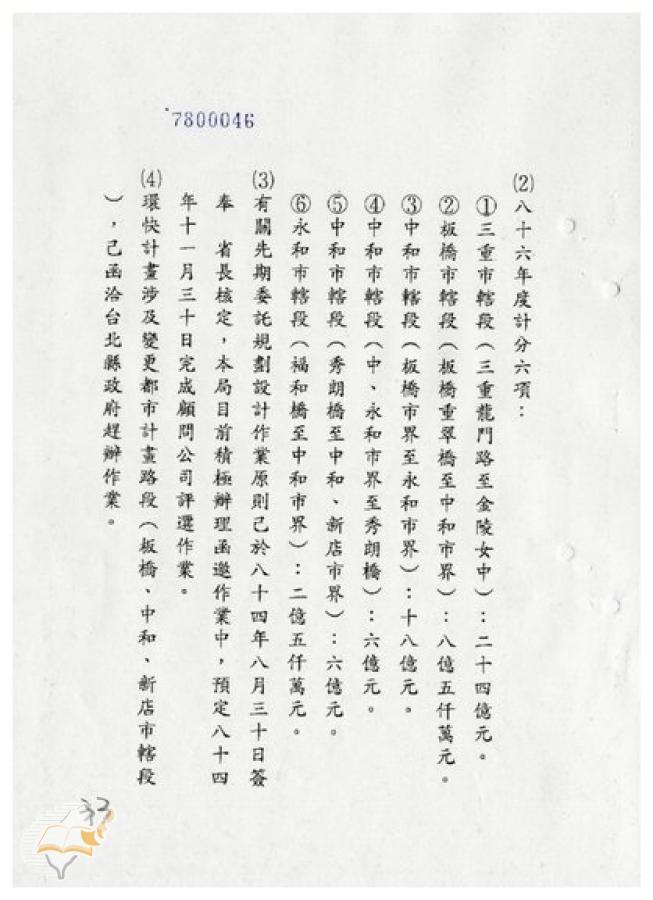 7800046
⑵八十六年度計分六項：
①三重市轄段（三重龍門路至金陵女中）：二十四億元。
②板橋市轄段（板橋重翠橋至中和市界）：八億五仟萬元。
③中和市轄段（板橋市界至永和市界）：十八億元。
④中和市轄段（中、永和市界至秀朗橋）：六億元。
⑤中和市轄段（秀朗橋至中和、新店市界）：六億元。
⑥永和市轄段（福和橋至中和市界）：二億五仟萬元。
⑶有關先期委託規劃設計作業原則已於八十四年八月三十日簽
奉　省長核定，本局目前積極辦理函邀作業中，預定八十四
年十一月三十日完成顧問公司評選作業。
⑷環快計畫涉及變更都市計畫路段（板橋、中和、新店市轄段
），已函洽台北縣政府趕辦作業。